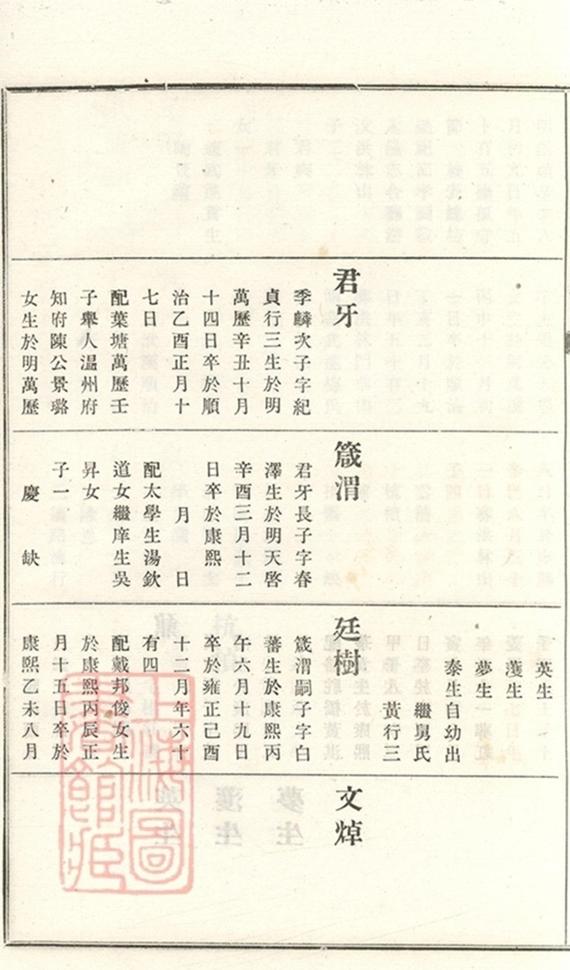 君牙
季麟次子字紀
貞行三生於明
萬歷辛丑十月
十四日卒於順
治乙酉正月十
七日
配葉塘萬歷壬
子舉人温州府
知府陳公景璐
女生於明萬歷
箴渭
君牙長子字春
澤生於明天啓
辛酉三月十二
日卒於康熙
月 日
配太學生湯欽
道女繼庠生吳
昇女
子一
慶 缺
英生
濩生
夢生
泰生自幼出
繼舅氏
黃行三
廷樹
箴渭嗣子字白
蕃生於康熙丙
午六月十九日
卒於雍正己酉
十二月年六十
有四
配戴邦俊女生
於康熙丙辰正
月十五日卒於
康熙乙未八月
文焯
上海圖
書館藏